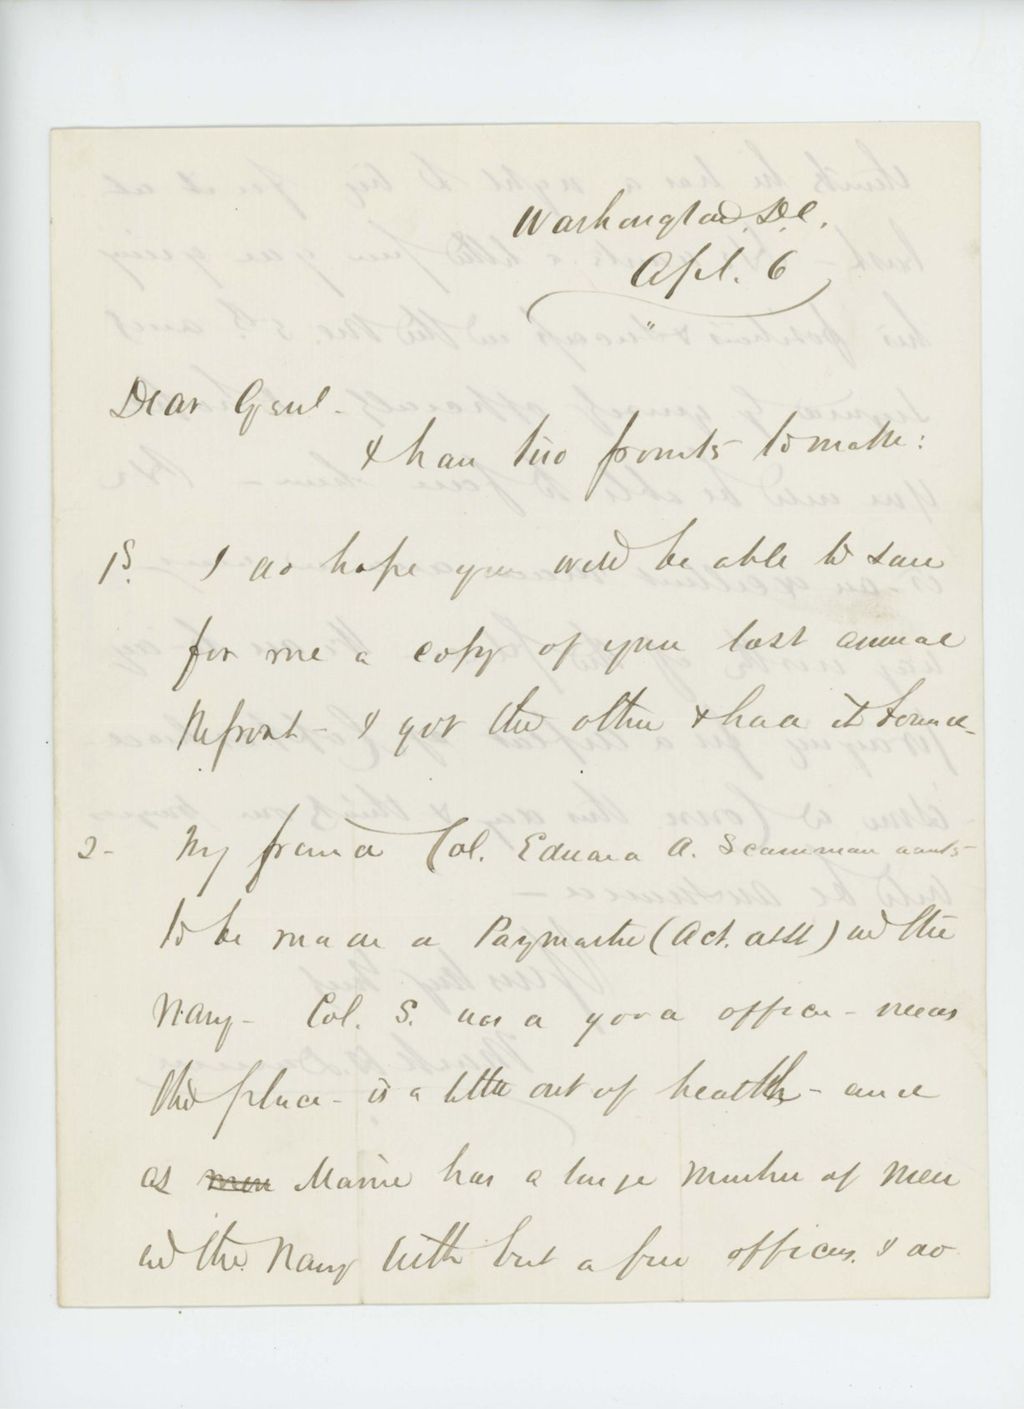 Washington, D.C.
Apl. 6
Dear Genl.
I have two points to make:
1st. I do hope you will be able to save
for me a copy of your last annual
Report - I got the other & had it bound -
2 - My friend Col. Edward A. Scamman wants
to be made a Paymaster (Act. asst) in the
Navy - Col. S. was a good officer - needs
the place - is a little out of health - and
as men Maine has a large number of men
in the Navy with but a few officers. I do